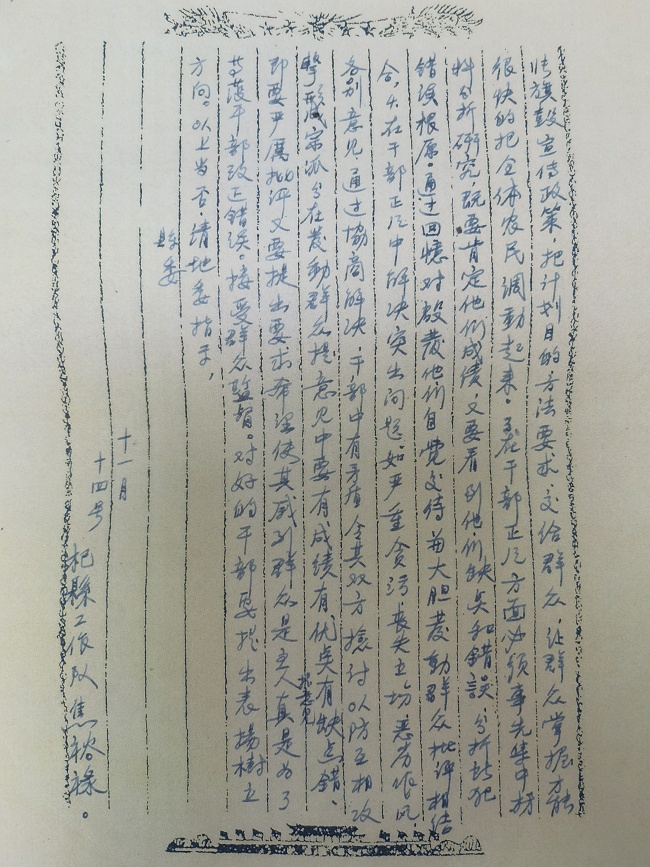 张旗鼓宣传政策，把计划目的方法要求，交给群众，让群众掌握才能
很快的把全体农民调动起来。在干部正风方面必须事先集中材
料分析研究，既要肯定他们成绩，又要看到他们缺点和错误，分析其犯
错误根原。通过回憶对 啟發他们自觉交待並大胆發動群众批评相结
合，在干部正风中解决突出问题。如严重贪污、丧失立场、恶劣作风，
各别意见，通过協商解决，干部中有矛盾令其双方檢讨以防互相攻
擊，形成宗派，在發動群众提意见中要有成绩有优点有缺点错、
提意见
即要严厲批评又要提出要求希望使其感到群众是主人真是为了
爱護干部改正错误。接受群众监督。对好的干部要提出表揚树立
方向。以上当否，请地委指示，
縣委
十一月
十四号
杞縣工作队焦裕禄。